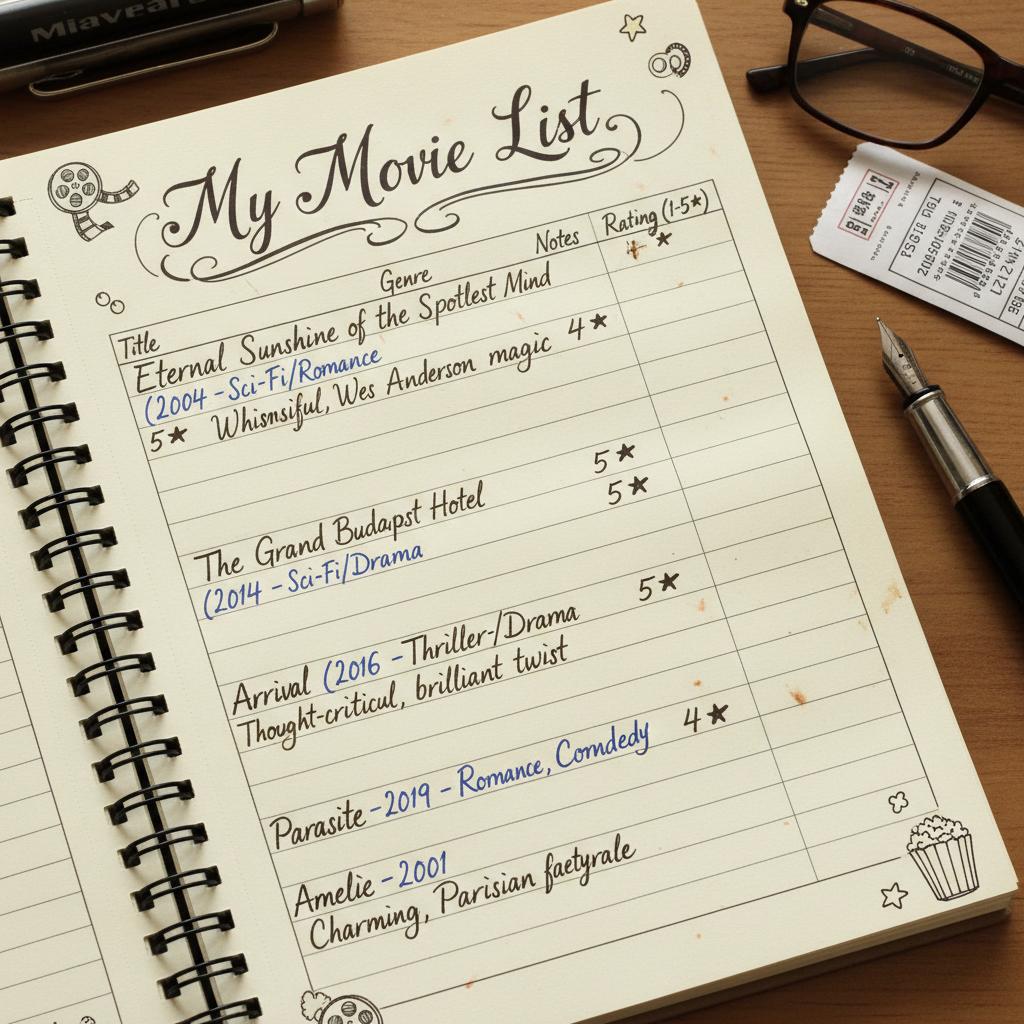 Miavear
My Movie List
Title Genre Notes Rating (1-5★)
★
Eternal Sunshine of the Spotlest Mind
(2004 - Sci-Fi/Romance 4★
5★ Whisnsiful, Wes Anderson magic
5★
The Grand Budapst Hotel 5★
(2014 - Sci-Fi/Drama
5★
Arrival (2016 - Thriller-/Drama
Thought-criticul, brilliant twist
4★
Parasite - 2019 - Romance, Comdedy
Amelie - 2001
Charming, Parisian faetyrale